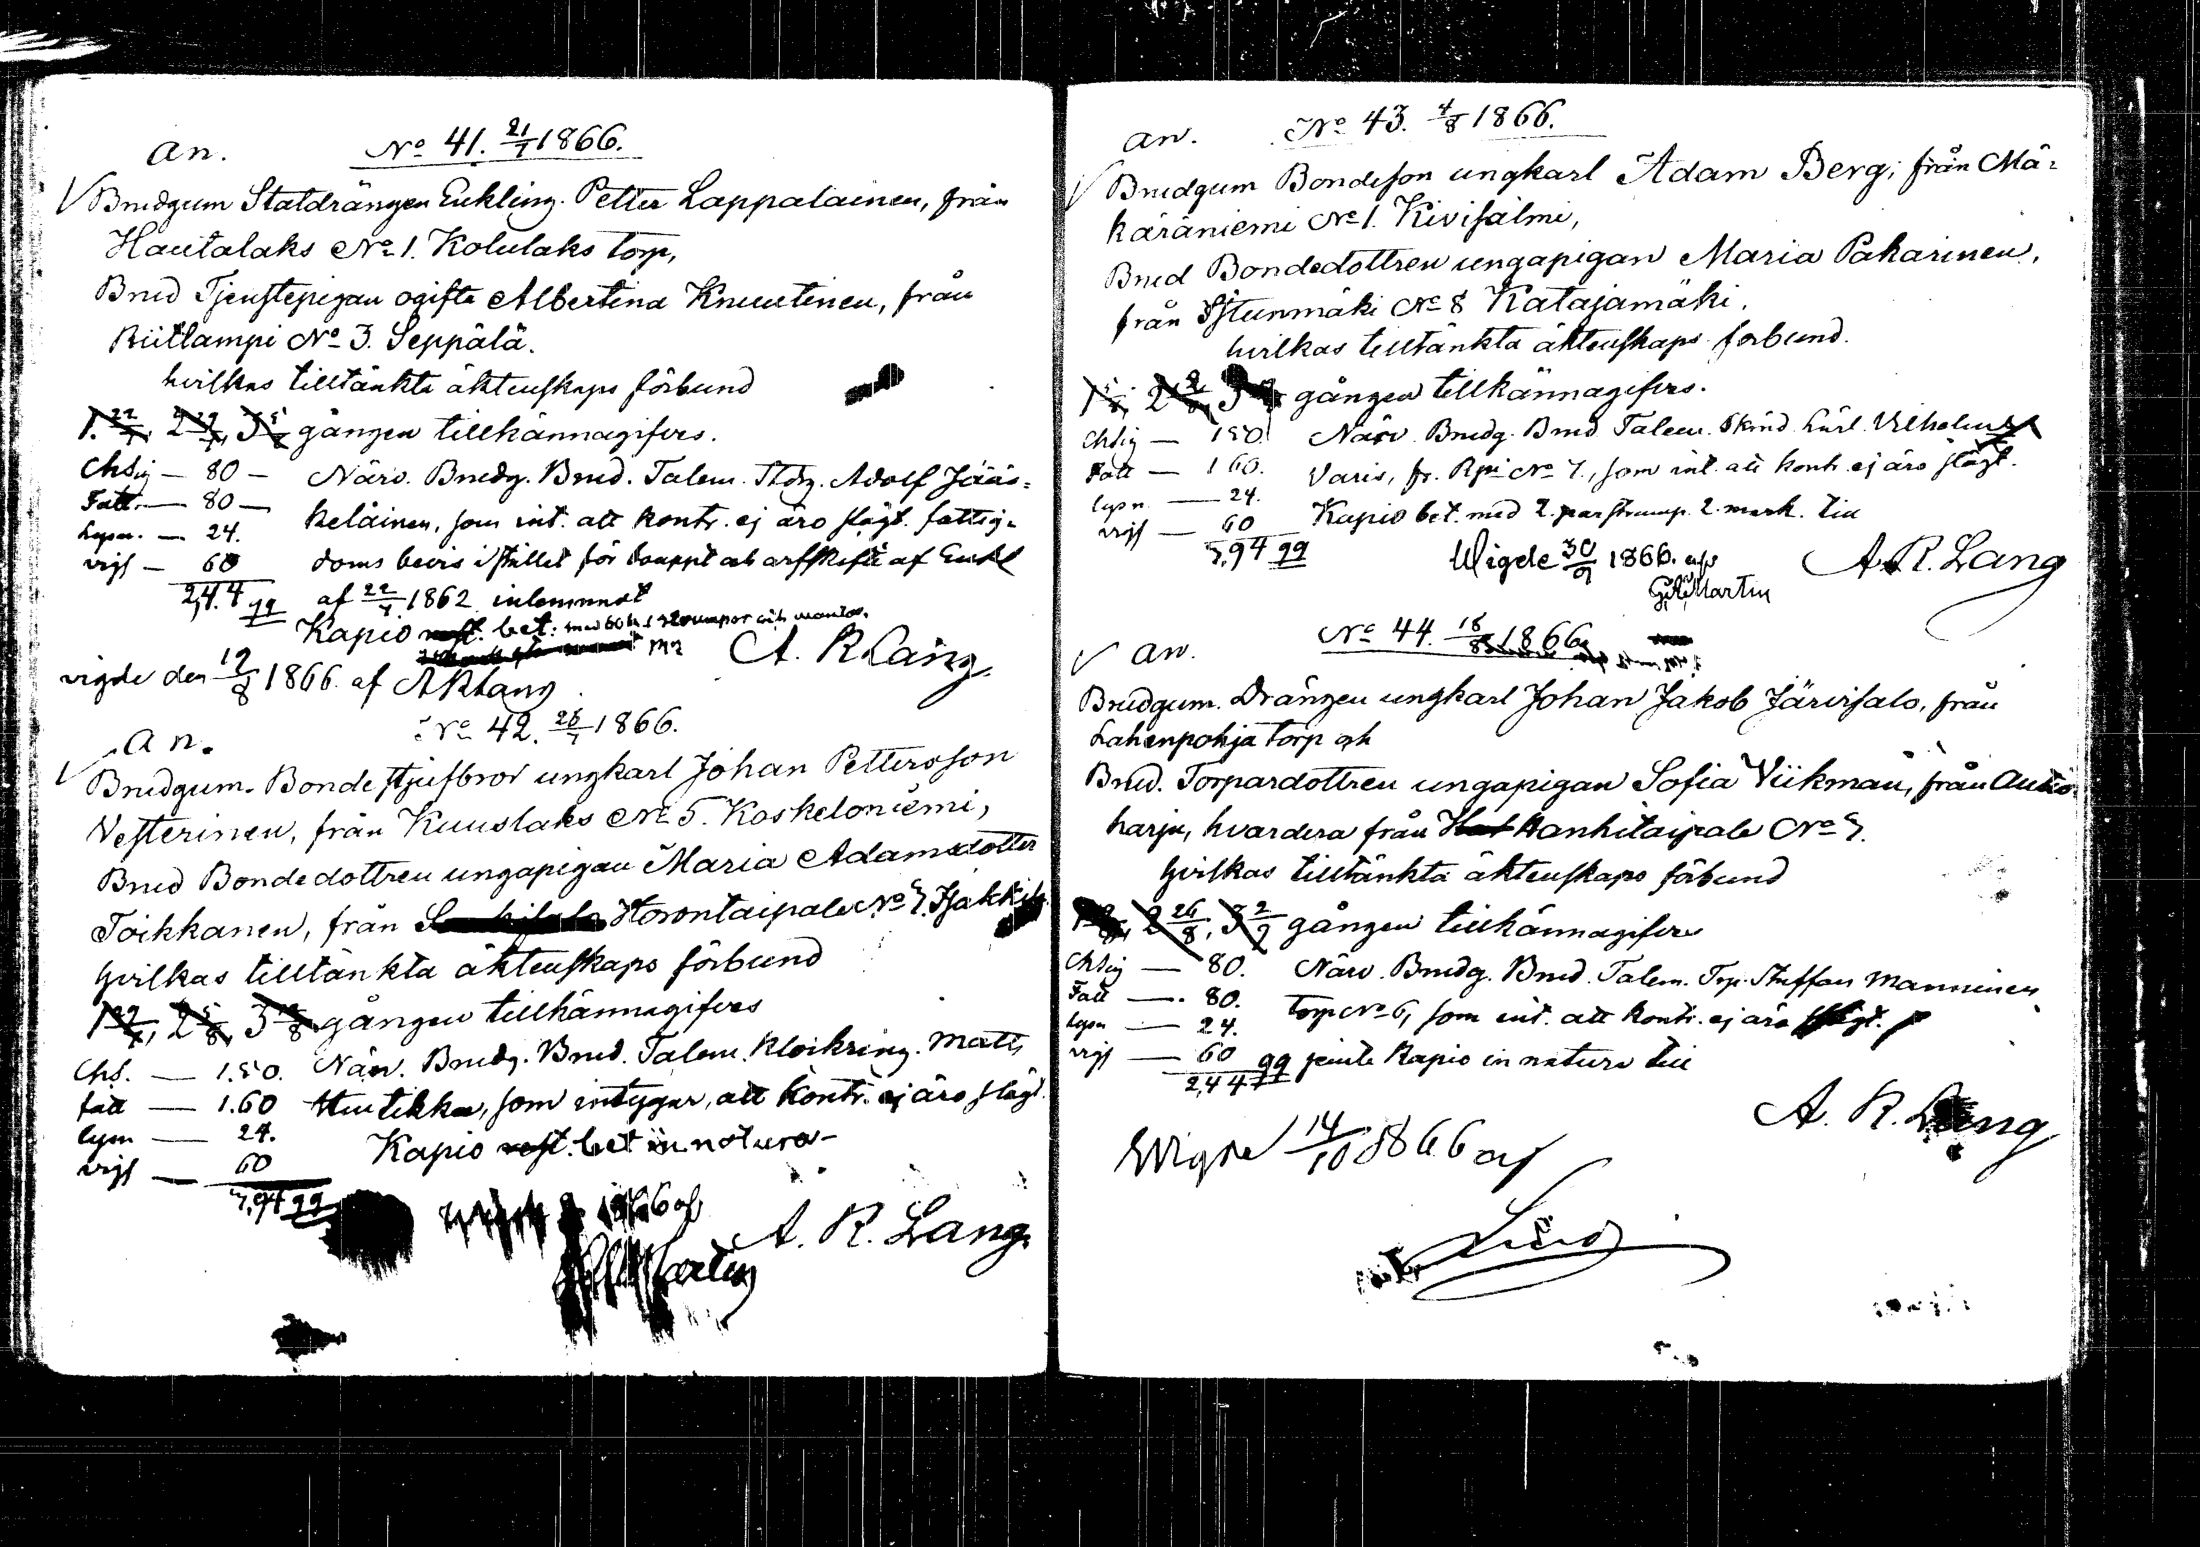 an. No 41. 21/7 1866.
Brudgum Statdrängen Enkling. Petter Lappalainen, från
Hautalaks No 1. Kolulaks torp,
Brud Tjenstepigan ogifta Albertina Knuutinen, från
Riitlampi No 3. Seppälä.
hvilkas tilltänkta äktenskaps förbund
1. 22/7, 2 29/7, 3 5/8 gången tillkännagifves.
Chsig — 80 — Närv. Brudg. Brud. Talem. Stdrg. Adolf Jääs-
Fatt. — 80 — keläinen, som int. att kontr. ej äro slägt. fattig-
lysn. — 24. doms bevis i stället för bouppt och arfskifte af Enkl
vigs — 60 af 22/7 1862 inlemnadt
2,44 qq
Kapio rest. bet.
A. R. Lang.
vigde den 12/8 1866. af A R Lang
an. No 42. 28/7 1866.
Brudgum. Bonde stjufbror ungkarl Johan Pettersson
Vesterinen, från Kuuslaks No 5. Koskeloniemi,
Brud Bondedottren ungapigan Maria Adamsdotter
Toikkanen, från Horontaipale No 7.
hvilkas tilltänkta äktenskaps förbund
1 29/7, 2 5/8, 3 gången tillkännagifves
Chs. — 1.50. Närv. Brudg. Brud. Talem. Matts
fatt — 1.60 som intygar, att kontr. ej äro slägt.
lysn — 24. Kapio rest. bet in natura —
vigs — 60
3,94 qq
1866 af
Martin
A. R. Lang.
an. No 43. 4/8 1866.
Brudgum Bondeson ungkarl Adam Berg, från Mä-
käräniemi No 1. Kivisalmi,
Brud Bondedottren ungapigan Maria Pakarinen,
från Istunmäki No 8 Katajamäki.
hvilkas tilltänkta äktenskaps forbund.
1 5/8, 2 gången tillkännagifves.
Chsig — 150. Närv. Brudg. Brud Talem. Vilhelm
Fatt — 160. Varis, fr. Rpi No 7., som int. att kontr. ej äro slägt.
lysn. — 24. Kapio bet. med 2. par strump. 2. mark. till
vigs — 60
3,94 qq
A. R. Lang
Wigde 30/9 1866. af
Martin
an. No 44. 18/8 1866
Brudgum. Drängen ungkarl Johan Jakob Järvisalo, från
Lahenpohja torp och
Brud. Torpardottren ungapigan Sofia Viikman, från Autio-
harju, hvardera från Hanhitaipale No 7.
hvilkas tilltänkta äktenskaps förbund
2 26/8, 3 2/9 gången tillkännagifves
Chsig — 80. Närv. Brudg. Brud. Talem. Trp. Staffan Manninen
Fatt — 80. torp No 6, som int. att kontr. ej äro slägt.
lysn — 24.
vigs — 60 Kapio in natura till
2,44 qq
A. R. Lang
Wigde 14/10 1866 af